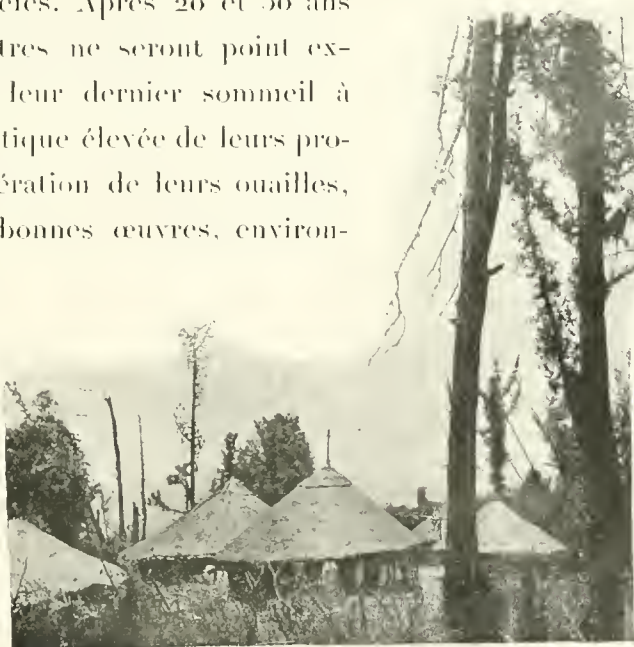 Après 20 et 30 ans
tres ne seront point ex-
leur dernier sommeil à
tique élevée de leurs pro-
ération de leurs ouailles,
bonnes œuvres, environ-